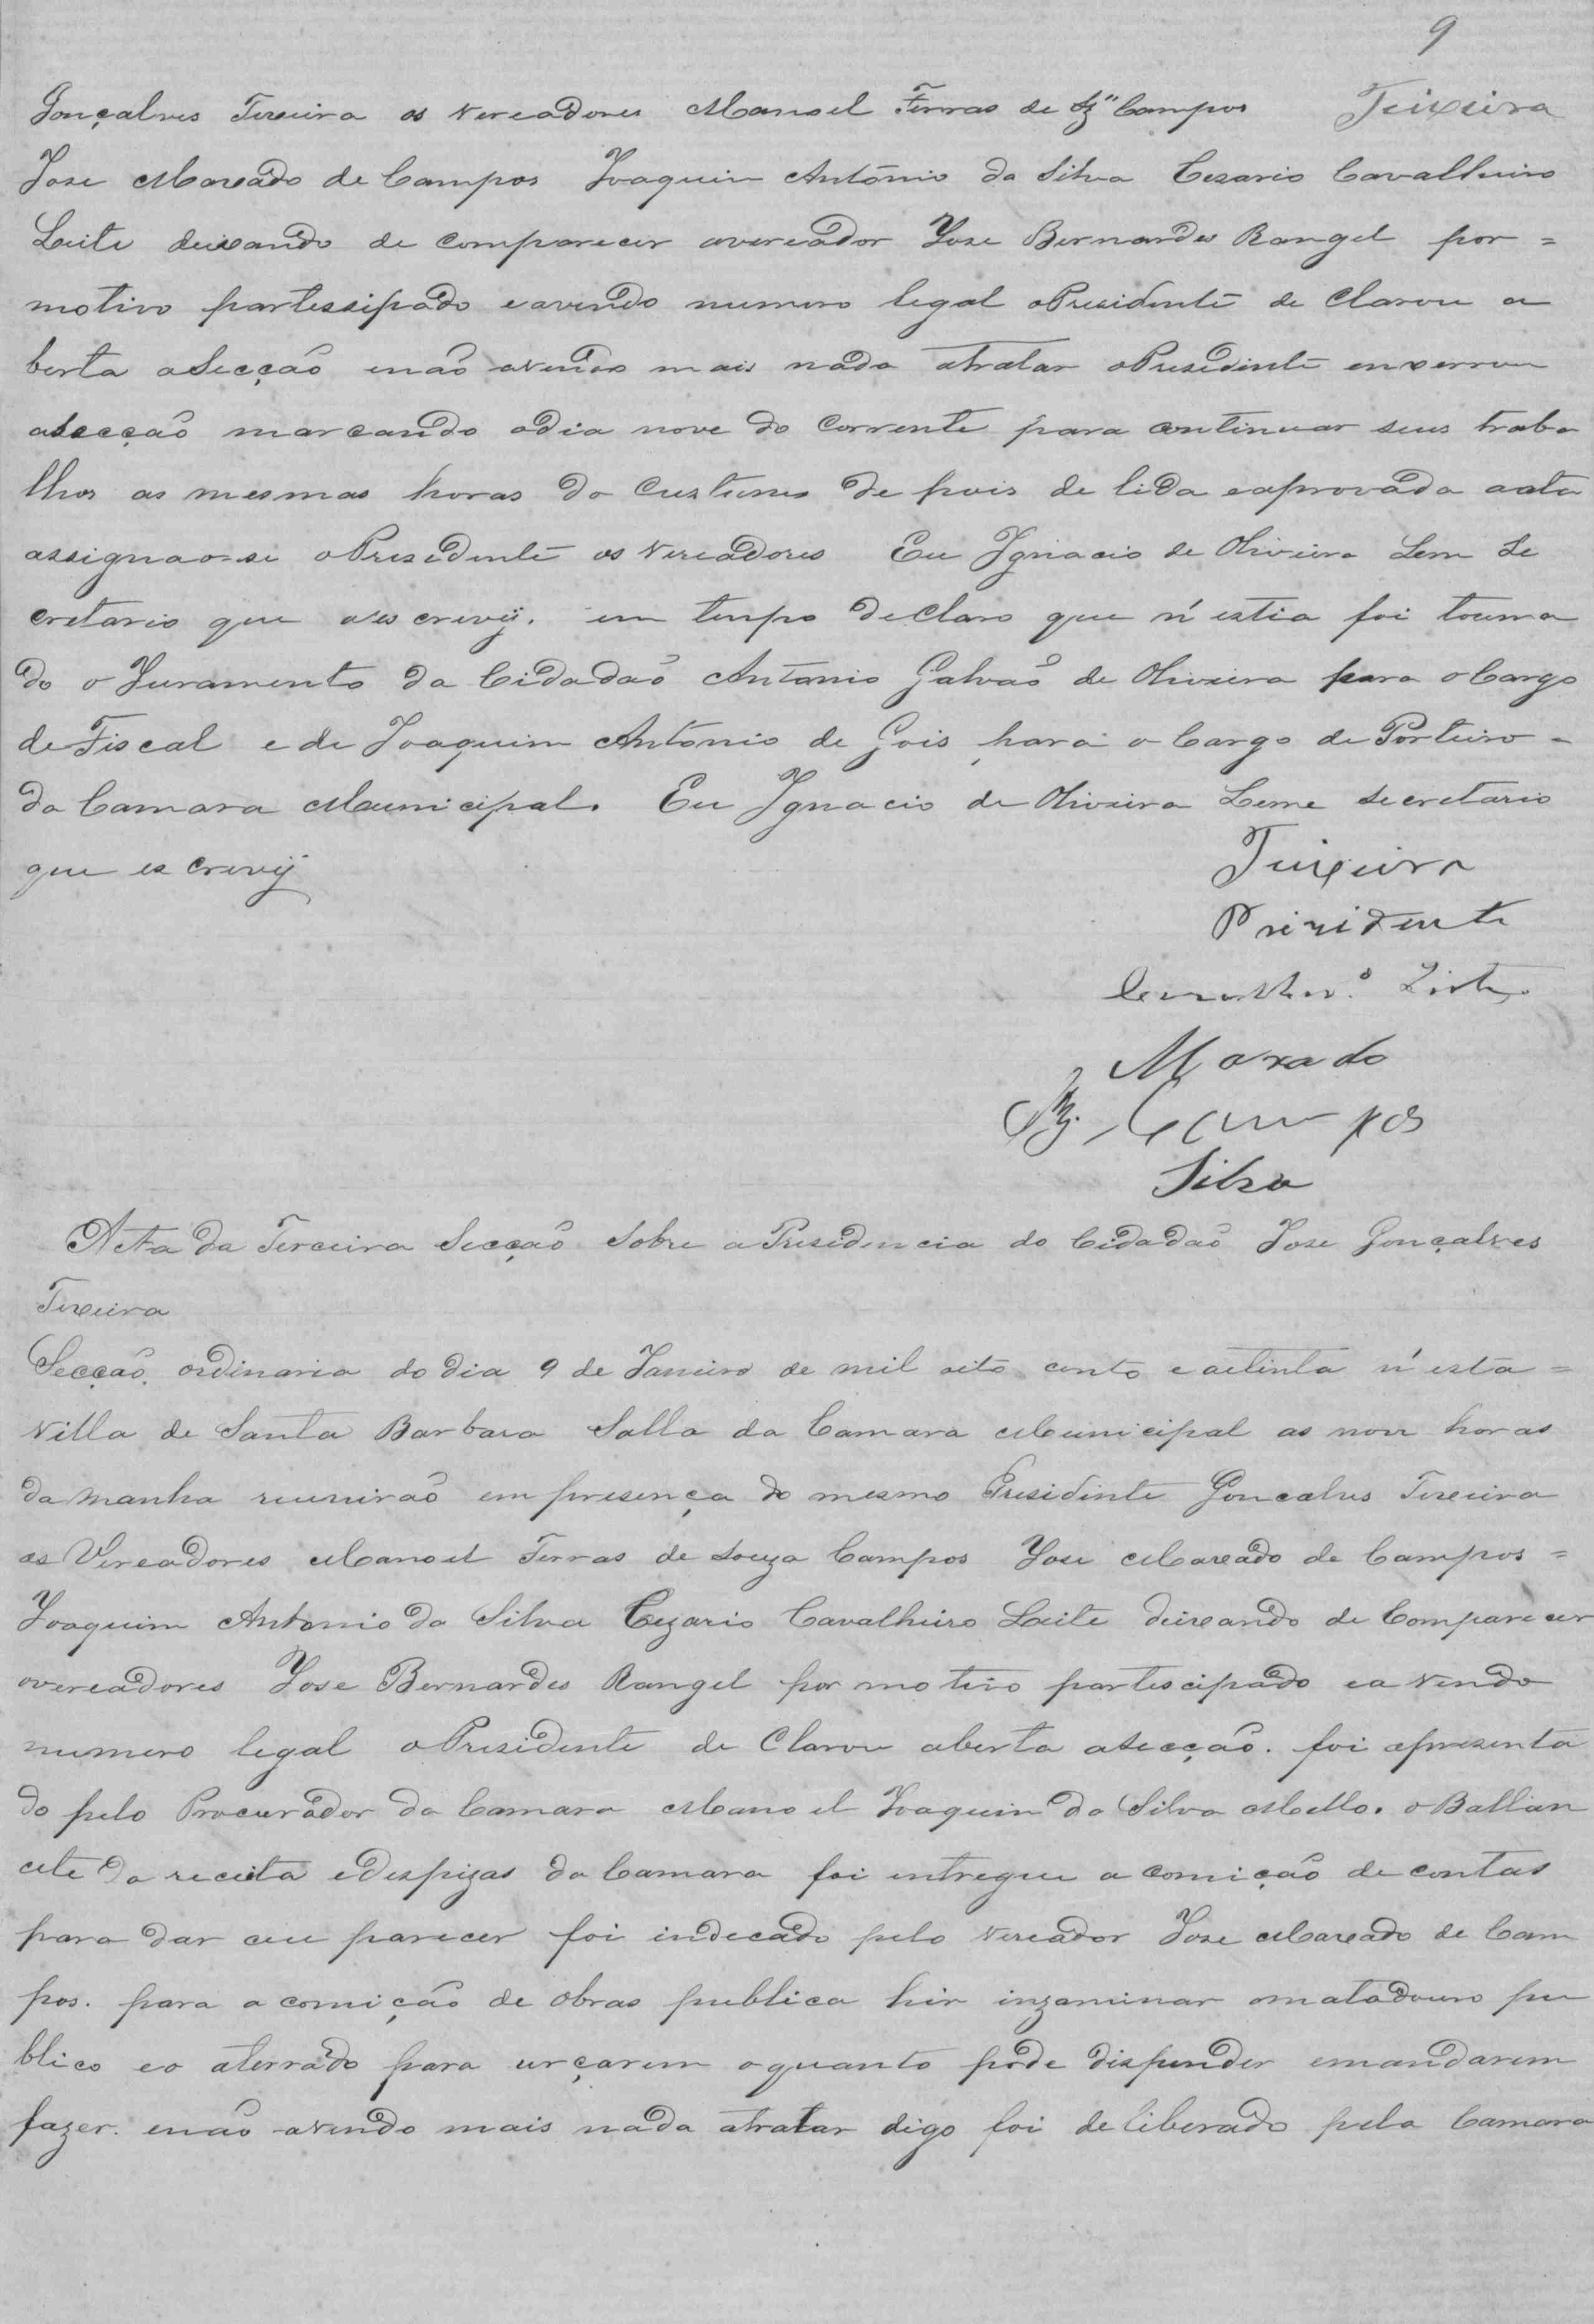 9
Gonçalves Texeira os vereadores Manoel Ferras de Sz.ª Campos Teixeira
Jose Maxado de Campos Joaquim Antonio da Silva Cezario Cavalheiro
Leite deixando de comparecer overeador Jose Bernardes Rangel por =
motivo partessipado eavendo numero legal oPresidente de clarou a
berta aSecção enão avendo mais nada atratar oPresidente enxerrou
aSecção marcando odia nove do corrente para continuar seus traba
lhos as mesmas horas do custume de pois de lida eaprovada aata
assignaose oPresidente os vereadores Eu Ignacio de Oliveira Lem Se
cretario que ases crevij. em tempo declaro que n'estia foi touma
do o Juramento da Cidadaõ Antonio Galvaõ de Oliveira para oCargo
de Fiscal e de Joaquim Antonio de Gois para o Cargo de Porteiro =
da Camara Municipal. Eu Ignacio de Oliveira Leme Secretario
que es crevij
Teixeira
Prizidente
Cavalhr.º Leite
Maxado
Sz. Campos
Silva
Acta da Terceira Secçaõ Sobre a Presidencia do Cidadaõ Jose Gonçalves
Texeira
Secçaõ ordinaria do dia 9 de Janeiro de mil oito cento e oitinta n'esta =
Villa de Santa Barbara Salla da Camara Municipal as nove horas
da manha reuniraõ em presença do mesmo Presidente Goncalves Texeira
os Vereadores Manoel Ferras de Souza Campos Jose Maxado de Campos =
Joaquim Antonio da Silva Cezario Cavalheiro Leite deixando de Comparecer
overeadores Jose Bernardes Rangel por motivo partescipado ea vendo
numero legal oPresidente de Clarou aberta aSecçaõ. foi apresenta
do pelo Procurador da Camara Manoel Joaquim da Silva Mello. o Ballan
cete da receita edespizas da Camara foi entregue a comiçaõ de contas
para dar ceu parecer foi indecado pelo vereador Jose Maxado de Cam
pos. para a comiçaõ de obras publica hir inzaminar omatadouro pu
blico eo aterrado para urçarem oquanto pode dispender emandarem
fazer. enaõ avendo mais nada atratar digo foi deliberado pela Camara